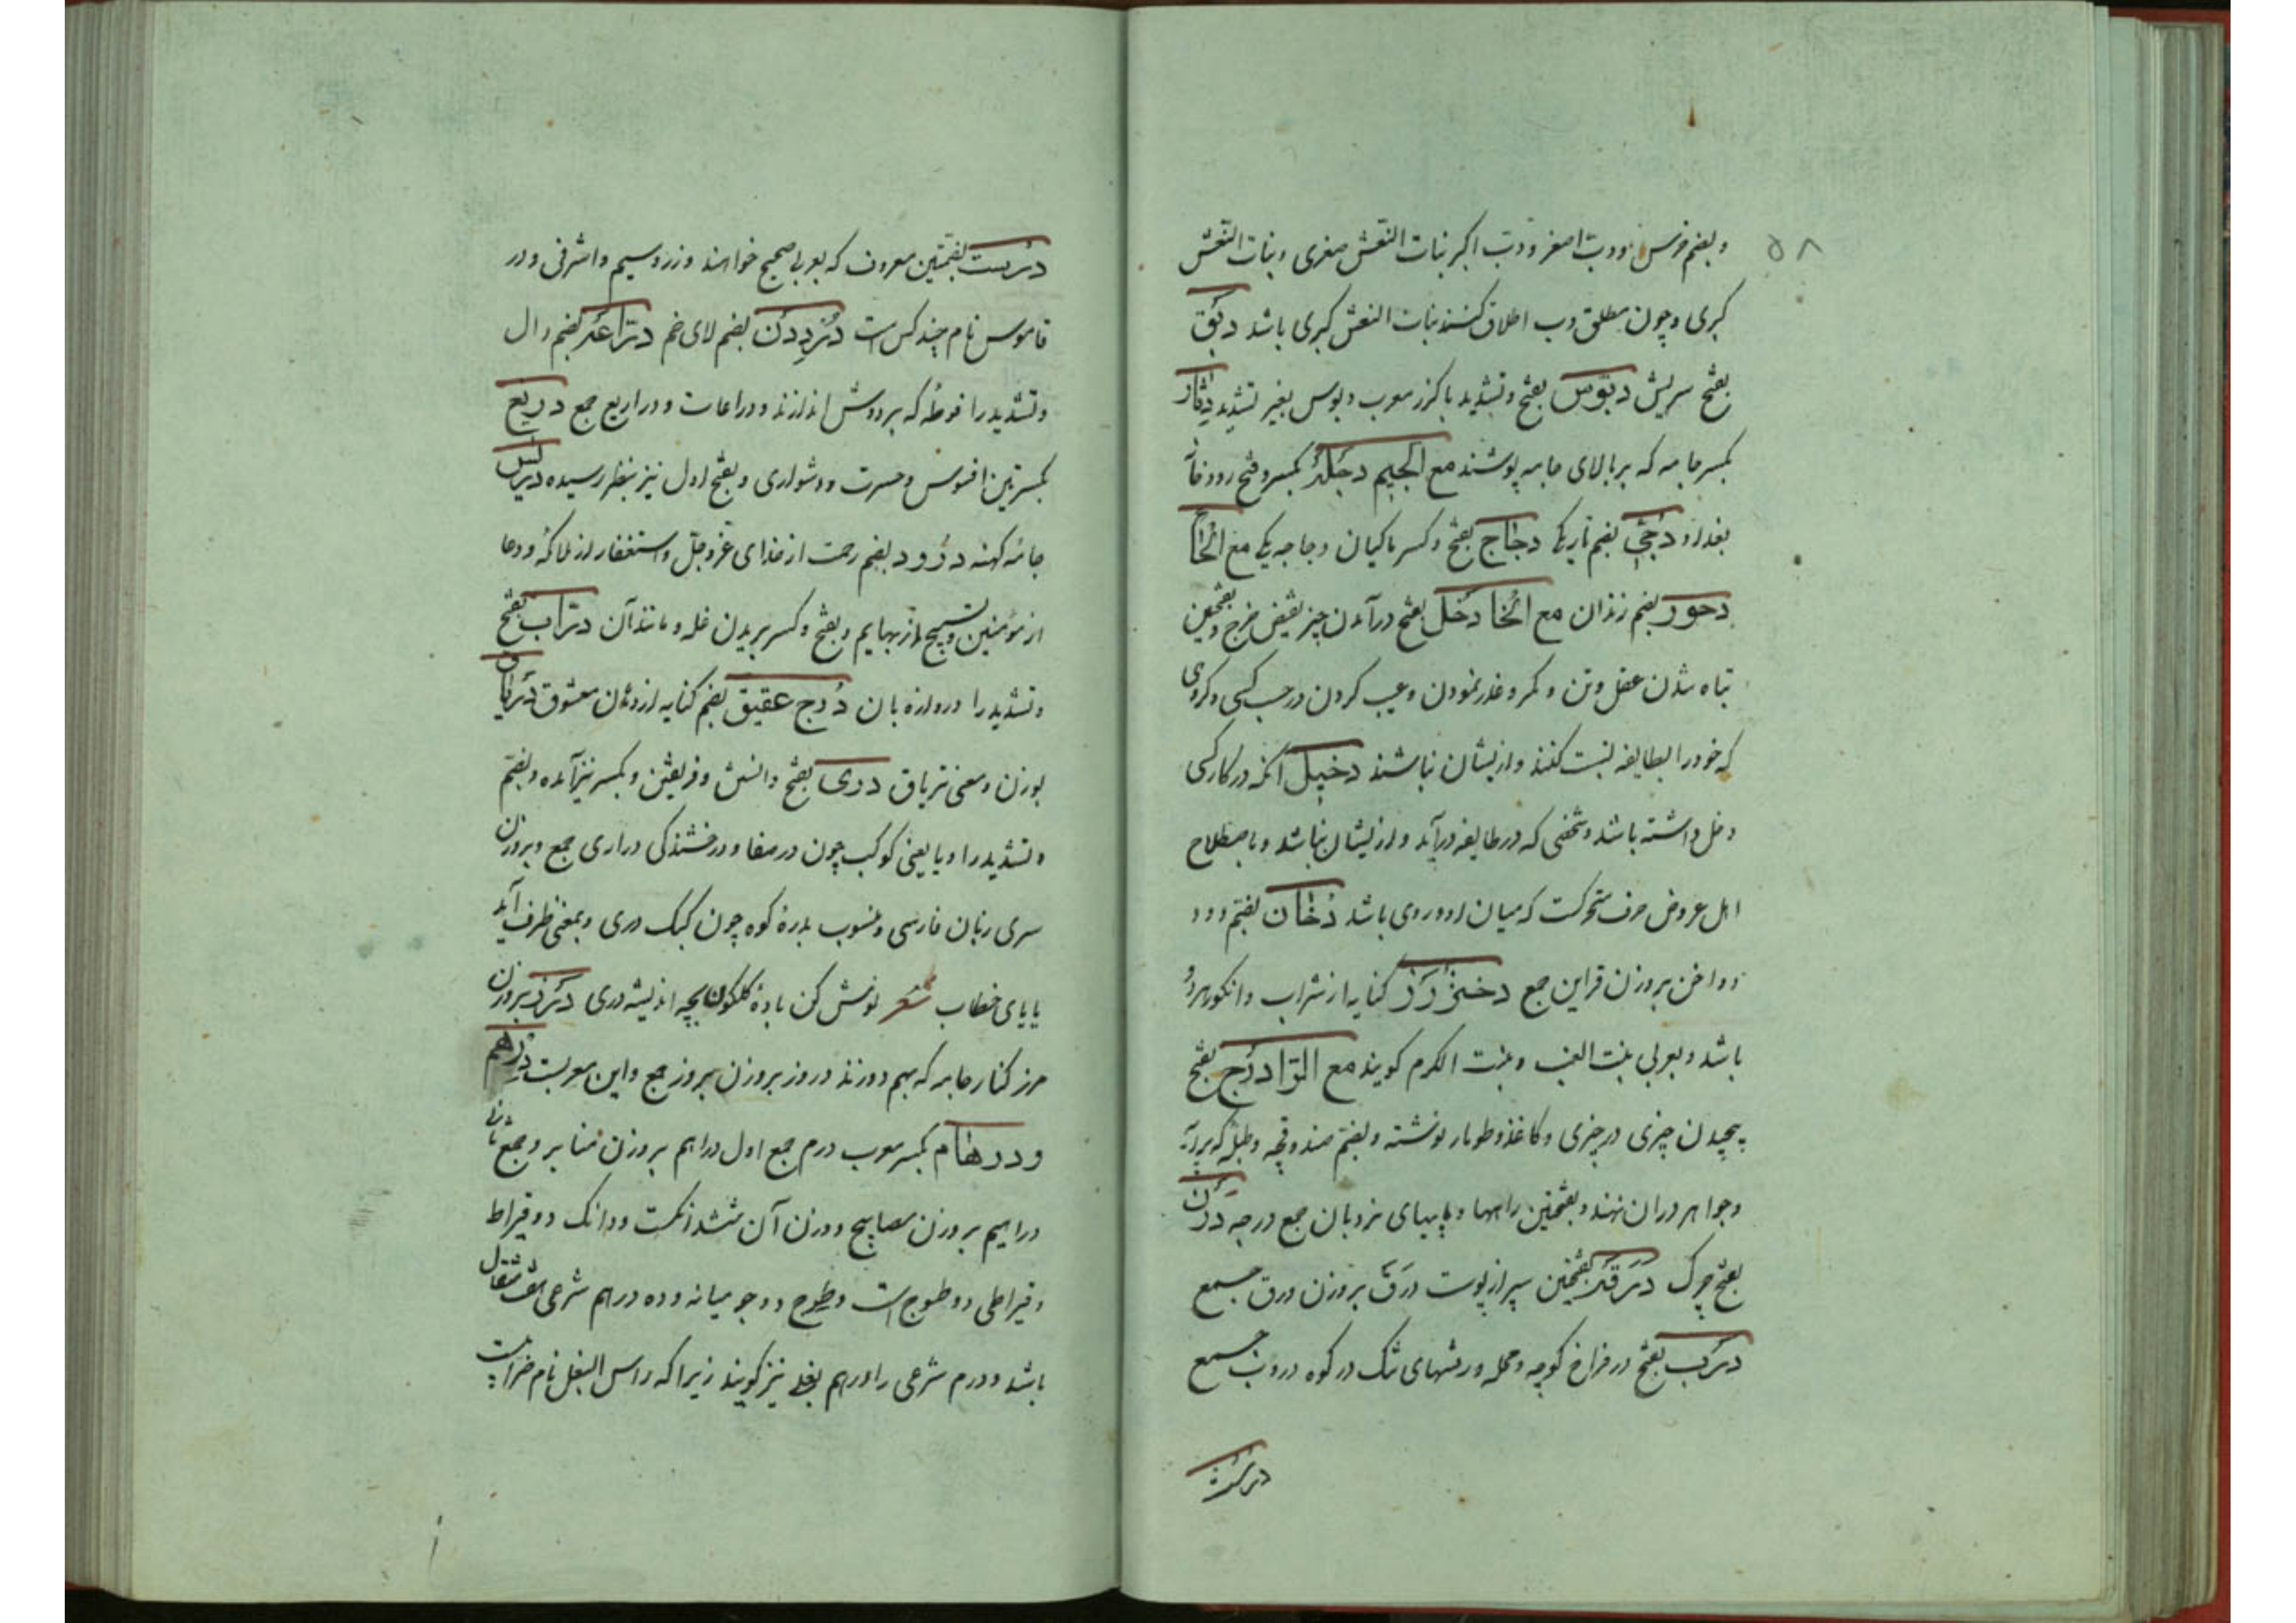 ۵۸
وبضم خرس ودبّ اصغر ودبّ اکبر بنات النعش صغری وبنات النعش
کبری وچون مطلق دب اطلاق کنند بنات النعش کبری باشد دبق
بفتح سریش دبّوس بفتح وتشدید با کرز معرب دبوس بغیر تشدید دثار
بکسر جامه که بر بالای جامه پوشند مع الجیم دجله بکسر وفتح رودخانه
بغداد دجی بضم تاریکی دجاج بفتح وکسر ماکیان دجاجه یکی مع الحا
دحور بضم راندن مع الخا دخل بفتح درآمدن چیز نقیض خرج وبفتحین
تباه شدن عقل وتن ومکر وغدر نمودن وعیب کردن در حسب کسی وکروهی
که خود را بطایفه نسبت کنند وازیشان نباشند دخیل آنکه در کار کسی
دخل داشته باشد وشخصی که در طایفه درآید وازیشان نباشد وباصطلاح
اهل عروض حرف متحرکست که میان ردو روی باشد دخان بضم دود
دواخن بروزن قراین جمع دختر رز کنایه از شراب وانکور هردو
باشد وبعربی بنت العنب وبنت الکرم کویند مع الرّا درج بفتح
پیچیدن چیزی در چیزی وکاغذ وطومار نوشته وبضم صندوقچه وطبله که پیرایه
وجواهر دران نهند وبفتحین راهها وپایهای نردبان جمع درجه درن
بفتح چرک درقه بفتحین سپر از پوست درق بروزن ورق جمع
درب بفتح در فراخ کوچه ومحله ورشتهای تنک در کوه دروب جمع
درست
درست بضمتین معروف که بعربی صحیح خوانند وزر وسیم واشرفی ودر
قاموس نام چند کس است دردی دن بضم لای خم درّاعه بضم دال
وتشدید را فوطه که بر دوش اندازند ودراعات ودراریع جمع دریغ
بکسرتین افسوس وحسرت ودشواری وبفتح اول نیز بنظر رسیده دریس
جامه کهنه درود بضم رحمت از خدای عز وجل واستغفار از ملائکه ودعا
از مؤمنین وتسبیح از بهایم وبفتح وکسر بریدن غله ومانند آن درّاب بفتح
وتشدید را دروازه بان درج عقیق بضم کنایه از دهن معشوق دریاق
بوزن ومعنی تریاق دری بفتح دانستن وفریفتن وبکسر نیز آمده وبضم
وتشدید را ویا یعنی کوکب چون در صفا ودرخشندکی دراری جمع وبروزن
سری زبان فارسی ومنسوب بدره کوه چون کبک دری وبمعنی ظرف آید
یا یای خطاب شعر نوش کن باده کلکون بچه اندیشه دری درز بروزن
مرز کنار جامه که بهم دوزند دروز بروزن بروز جمع واین معربست درهم
ودرهام بکسر معرب درم جمع اول دراهم بروزن منابر وجمع ثانی
دراهیم بروزن مصابیح ووزن آن شش دانکست ودانک دو قیراط
وقیراطی دو طسوج است وطسوج دو جو میانه وده دراهم شرعی هفت مثقال
باشد ودرم شرعی را درهم بغلی نیز کویند زیرا که راس البغل نام ضرّابیست